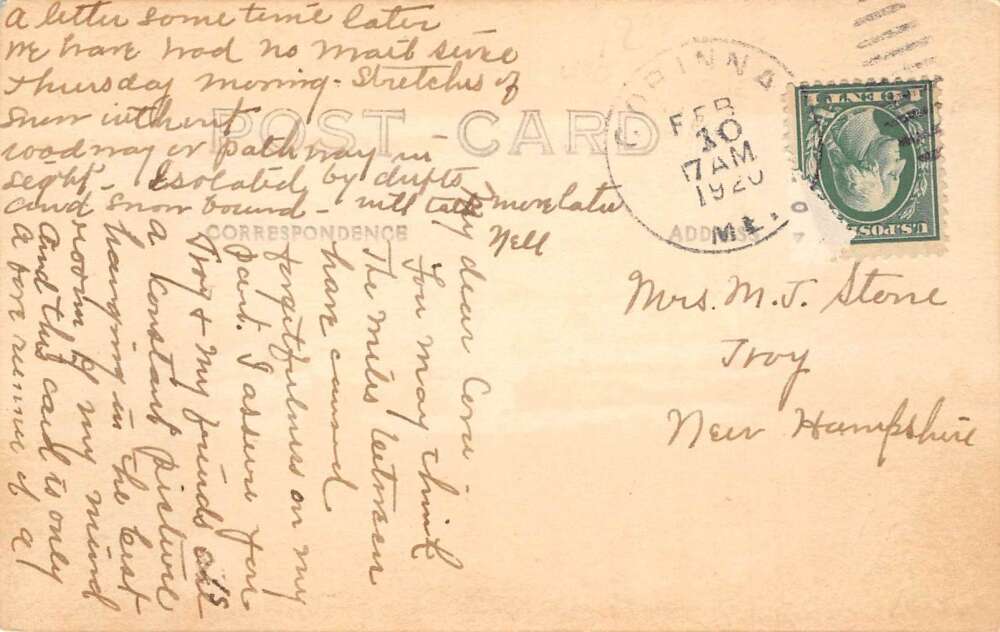 POST CARD
CORRESPONDENCE
ADDRESS
CORINNA
FEB
10
7 AM
1920
ME.
U.S. POST
CENT
Mrs. M. J. Stone
Troy
New Hampshire
My dear Cora
You may think
The miles between
have caused
forgetfulness on my
part. I assure you
Troy & my friends are
a constant picture
hanging in the best
room of my mind
And this card is only
a fore runner of a
a letter some time later
We have had no mail since
Thursday morning - Stretches of
snow without
roadway or pathway in
sight - Isolated by drifts
and snow bound - will talk more later
Nell